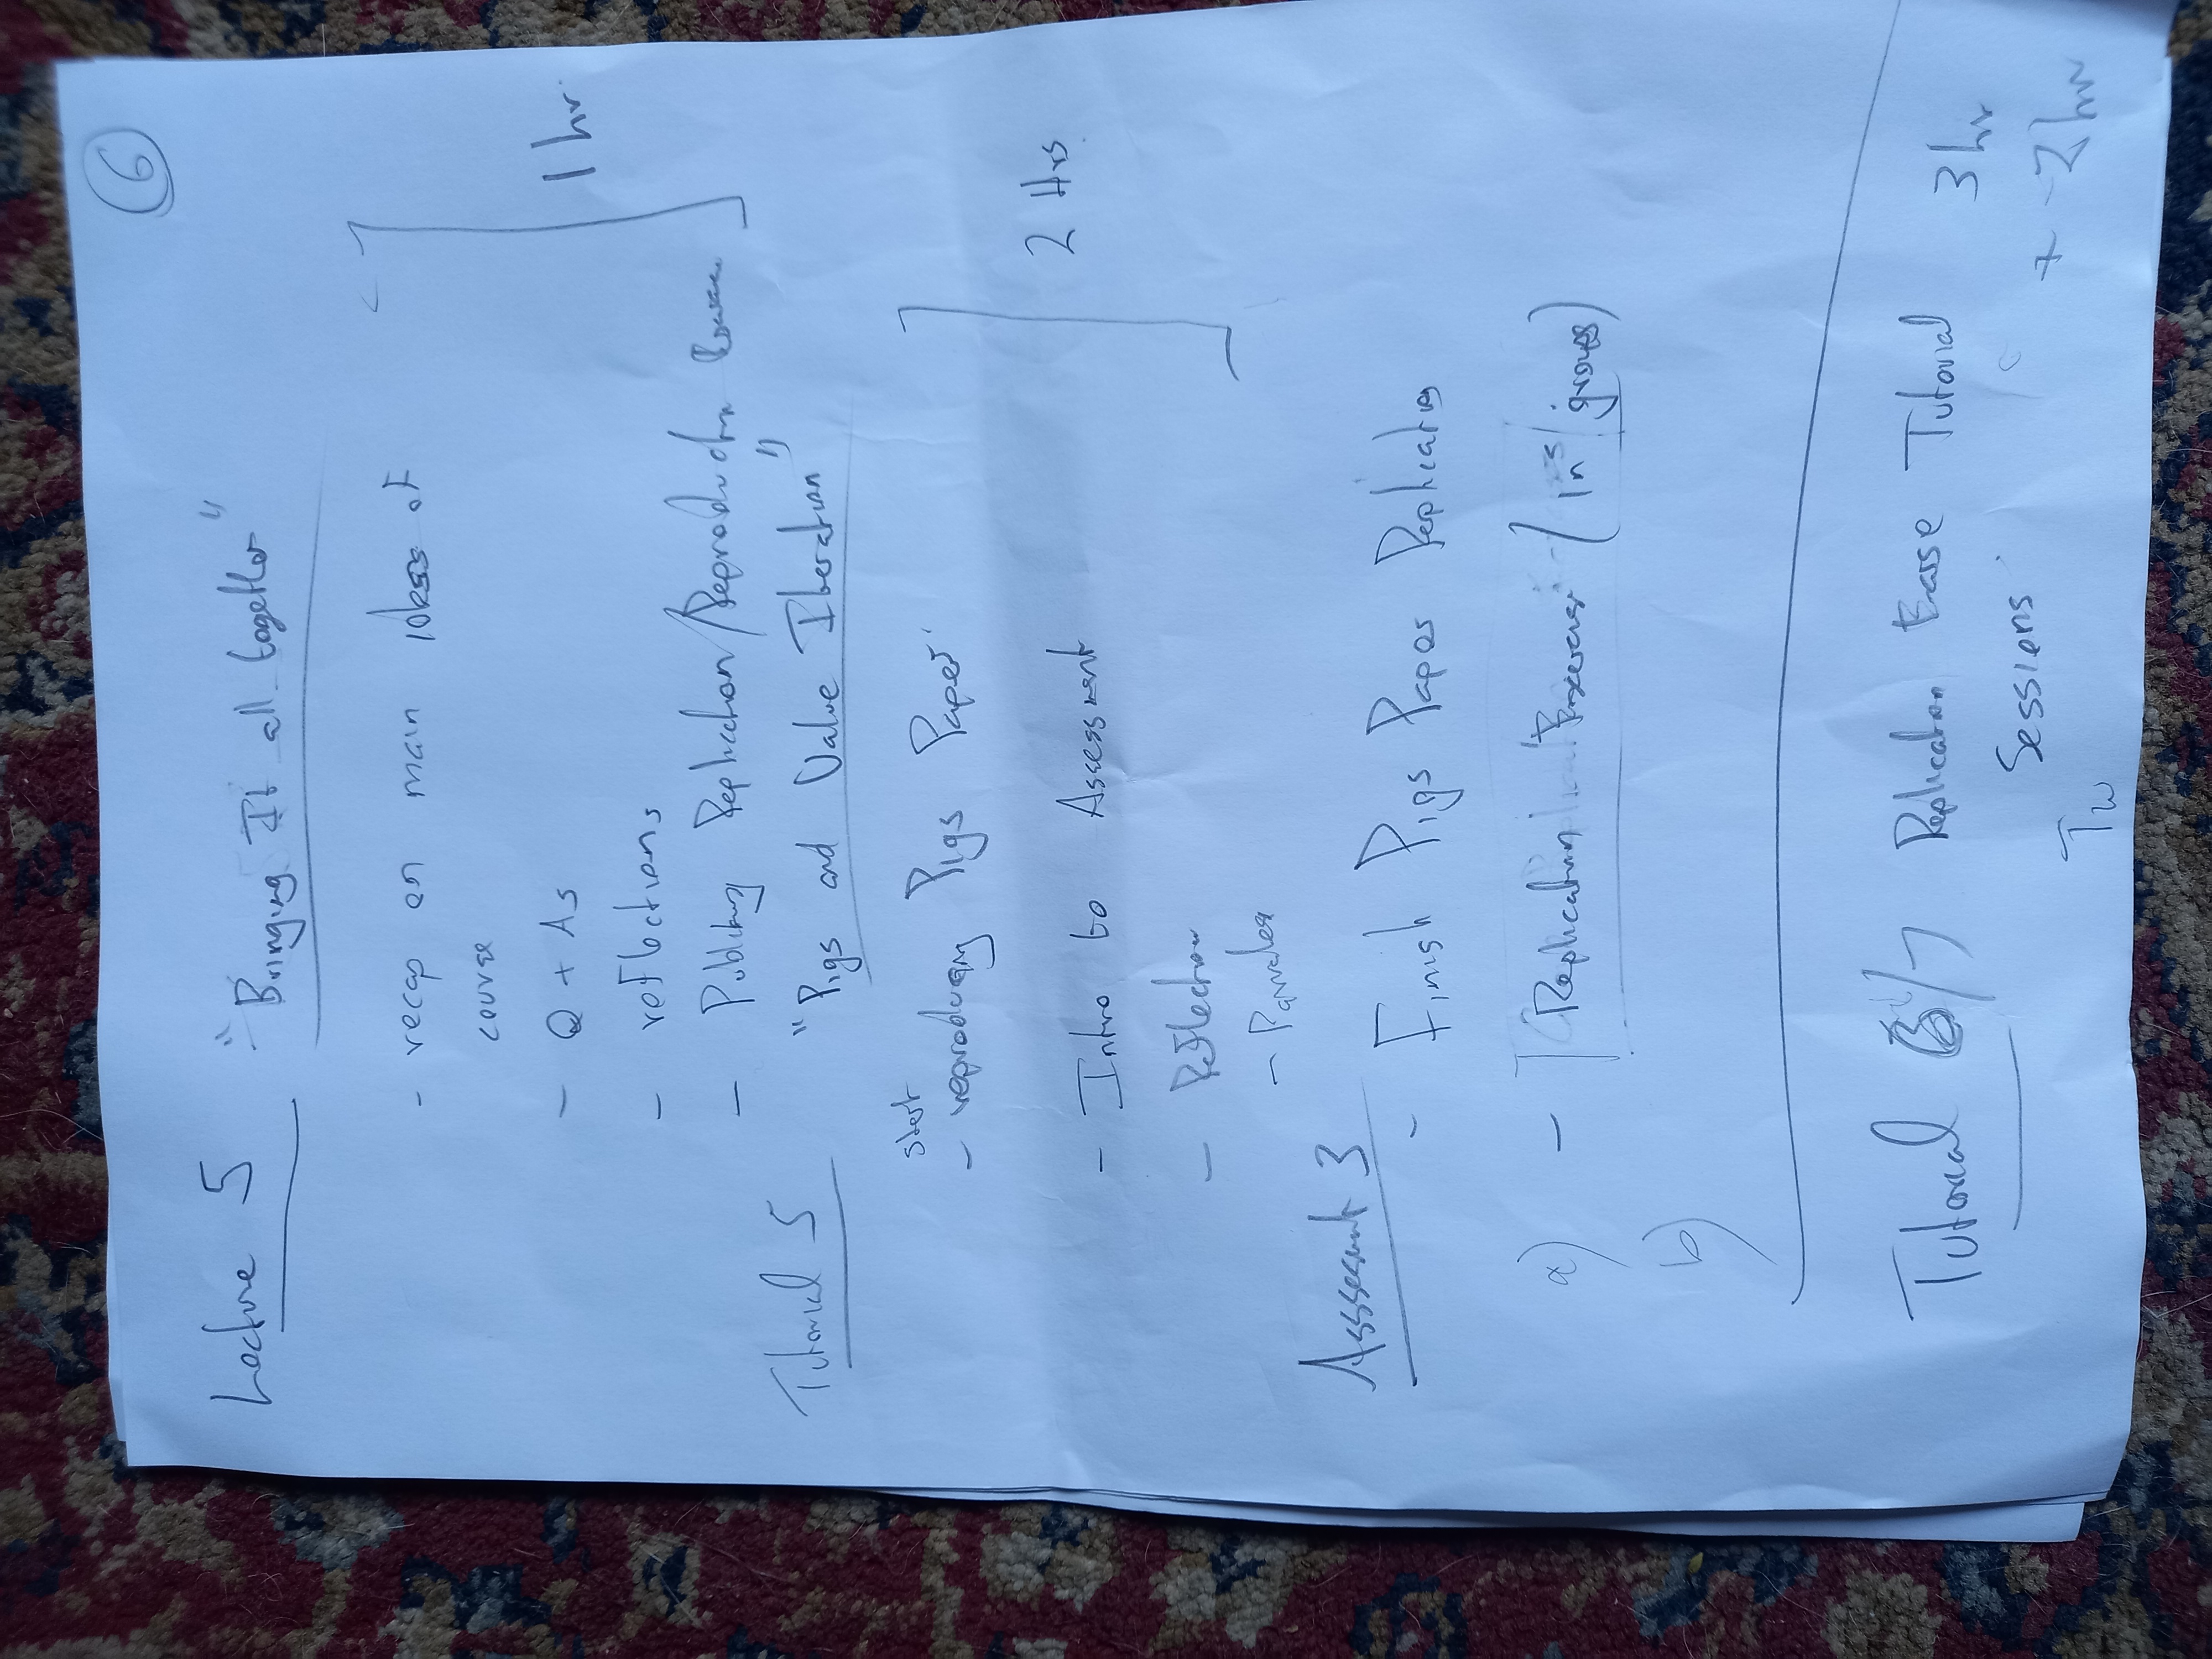 6
Lecture 5 "Bringing It all together"
- recap on main ideas of
course
- Q + As
- reflections
- Publishing Replication/Reproduction
1 hr.
Tutorial 5 "Pigs and Value Iteration"
start
- reproducing Pigs Paper
- Intro to Assessment
- Reflection
2 Hrs
Asssesment 3
- Finish Pigs Paper Replication
a) - Replication Exercise (in groups)
b)
Tutorial 6/7 Replication Tutorial
Sessions
3 hr
+ 2 hr
Tw